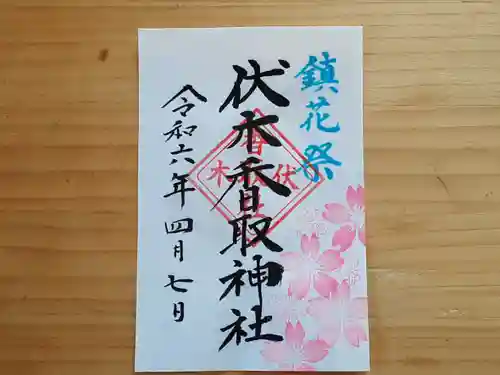 鎮花祭
伏木香取神社
令和六年四月七日